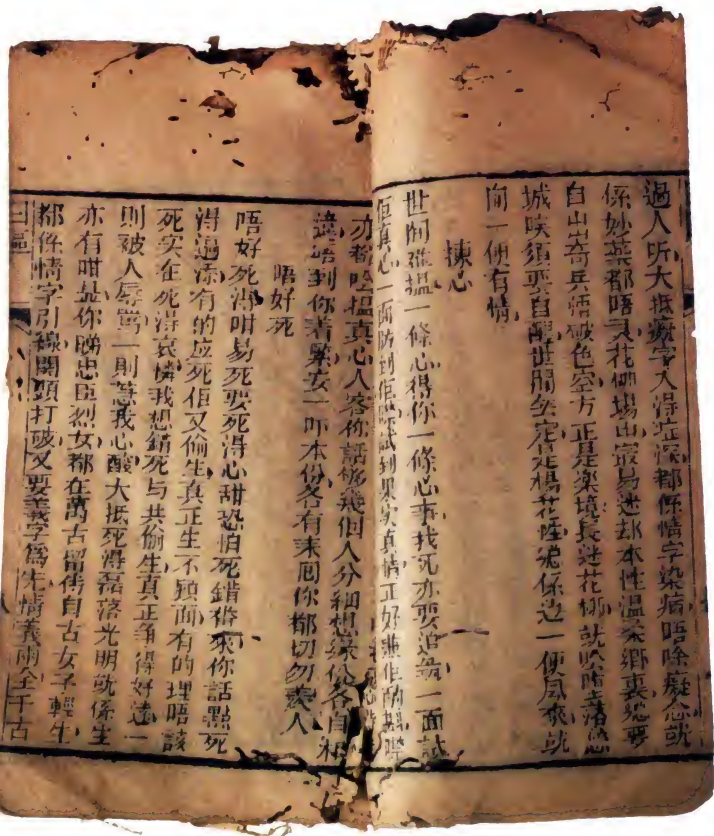 過人听大抵癡字入得症深都係情字染病唔除癡念就
係妙藥都唔灵花柳塲中最易迷却本性溫柔鄉裏總要
自出奇兵悟破色空方正是樂境長迷花柳就墮落愁
城唉須要自醒世間無定是楊花性總係边一便風來就
向一便有情
揀心
世間難揾一條心得你一條心事我死亦要追尋一面試
佢真心一面防到佢噤試到果实真情正好兼佢的斟
亦都唅揾真心人客你話够幾個人分細想緣份各自相
遠唔到你着緊安一吓本份各有來因你都切勿羨人
唔好死
唔好死得咁易死要死得心甜恐怕死錯番來你話點死
得過添有的应死佢又偷生真正生不顾面有的理唔該
死实在死得哀憐我想錯死与共偷生真正爭得好遠一
則被人辱罵一則惹我心酸大抵死得磊落光明就係生
亦有咁显你睇忠臣烈女都在萬古留传自古女子輕生
都係情字引線開頭打破又要義字爲先情義兩全千古